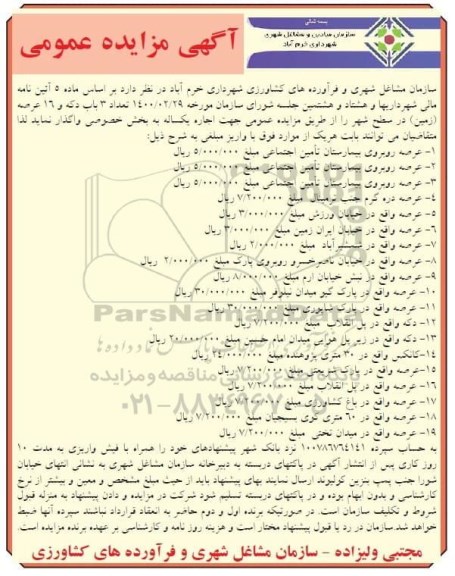 بسمه تعالی
سازمان میادین و مشاغل شهری
شهرداری خرم آباد
آگهی مزایده عمومی
سازمان مشاغل شهری و فرآورده های کشاورزی شهرداری خرم آباد در نظر دارد بر اساس ماده ۵ آئین نامه
مالی شهرداریها و هشتاد و هشتمین جلسه شورای سازمان مورخه ۱۴۰۰/۰۲/۲۹ تعداد ۳ باب دکه و ۱۶ عرصه
(زمین) در سطح شهر را از طریق مزایده عمومی جهت اجاره یکساله به بخش خصوصی واگذار نماید لذا
متقاضیان می توانند بابت هریک از موارد فوق با واریز مبلغی به شرح ذیل:
۱- عرصه روبروی بیمارستان تأمین اجتماعی مبلغ ۵/۰۰۰/۰۰۰ ریال
۲- عرصه روبروی بیمارستان تأمین اجتماعی مبلغ ۵/۰۰۰/۰۰۰ ریال
۳- عرصه روبروی بیمارستان تأمین اجتماعی مبلغ ۵/۰۰۰/۰۰۰ ریال
۴- عرصه دره گرم جنب ترمینال مبلغ ۷/۲۰۰/۰۰۰ ریال
۵- عرصه واقع در خیابان ورزش مبلغ ۳/۰۰۰/۰۰۰ ریال
۶- عرصه واقع در خیابان ایران زمین مبلغ ۳/۰۰۰/۰۰۰ ریال
۷- عرصه واقع در شمشیرآباد مبلغ ۲/۰۰۰/۰۰۰ ریال
۸- عرصه واقع در خیابان ناصرخسرو روبروی پارک مبلغ ۲/۰۰۰/۰۰۰ ریال
۹- عرصه واقع در نبش خیابان ارم مبلغ ۸/۰۰۰/۰۰۰ ریال
۱۰- عرصه واقع در پارک کیو میدان نیلوفر مبلغ ۳۰/۰۰۰/۰۰۰ ریال
۱۱- عرصه واقع در پارک شاپوری مبلغ ۳۰/۰۰۰/۰۰۰ ریال
۱۲- دکه واقع در پل انقلاب مبلغ ۷/۲۰۰/۰۰۰ ریال
۱۳- دکه واقع در زیر پل هوایی میدان امام حسین مبلغ ۲۰/۰۰۰/۰۰۰ ریال
۱۴- کانکس واقع در ۳۰ متری پژوهنده مبلغ ۲۴/۰۰۰/۰۰۰ ریال
۱۵- عرصه واقع در پارک شریعتی مبلغ ۷/۲۰۰/۰۰۰ ریال
۱۶- عرصه واقع در پل انقلاب مبلغ ۷/۲۰۰/۰۰۰ ریال
۱۷- عرصه واقع در باغ کشاورزی مبلغ ۷/۲۰۰/۰۰۰ ریال
۱۸- عرصه واقع در ۶۰ متری کوی بسیجیان مبلغ ۷/۲۰۰/۰۰۰ ریال
۱۹- عرصه واقع در میدان تختی مبلغ ۷/۲۰۰/۰۰۰ ریال
به حساب سپرده ۱۰۰۷۸۶۷۶۴۱۴۱ نزد بانک شهر پیشنهادهای خود را همراه با فیش واریزی به مدت ۱۰
روز کاری پس از انتشار آگهی در پاکتهای دربسته به دبیرخانه سازمان مشاغل شهری به نشانی انتهای خیابان
شورا جنب پمپ بنزین کولیوند ارسال نمایند بهای پیشنهاد باید از حیث مبلغ مشخص و معین و بیشتر از نرخ
کارشناسی و بدون ابهام بوده و در پاکتهای دربسته تسلیم شود شرکت در مزایده و دادن پیشنهاد به منزله قبول
شروط و تکلیف سازمان است. در صورتیکه برنده اول و دوم حاضر به انعقاد قرارداد نباشند سپرده آنها ضبط
خواهد شد.سازمان در رد یا قبول پیشنهاد مختار است و هزینه روز نامه و کارشناسی بر عهده برنده مزایده است.
مجتبی ولیزاده - سازمان مشاغل شهری و فرآورده های کشاورزی
ParsNamadData
پایگاه اطلاع رسانی مناقصه و مزایده
۰۲۱-۸۸۳۴۹۶۷۰-۵